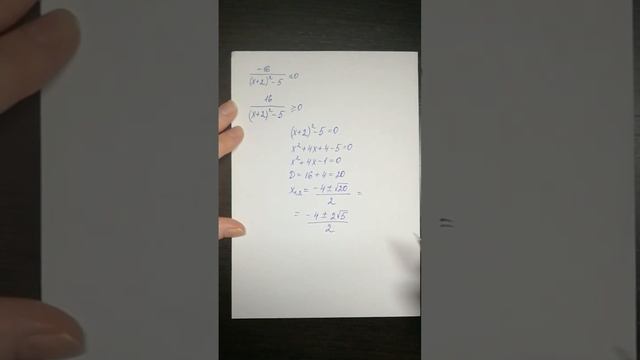 -16/((x+2)²-5) ≤0
16/((x+2)²-5) ≥0
(x+2)²-5=0
x²+4x+4-5=0
x²+4x-1=0
D=16+4=20
x₁,₂= (-4±√20)/2 =
= (-4±2√5)/2